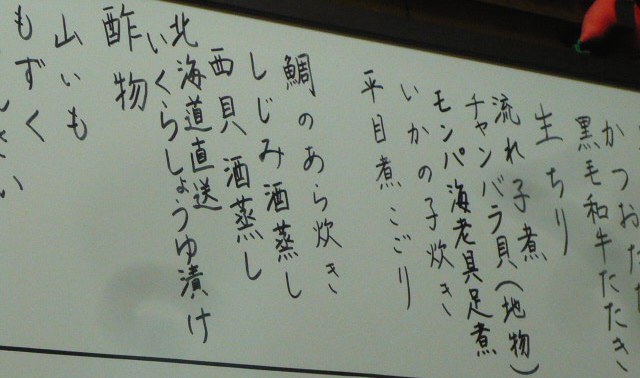 かつおたた
黒毛和牛たたき
生ちり
流れ子煮
チャンバラ貝(地物)
モンパ海老具足煮
いかの子炊き
平目煮こごり
鯛のあら炊き
しじみ酒蒸し
西貝酒蒸し
北海道直送
いくらしょうゆ漬け
酢物
山いも
もずく